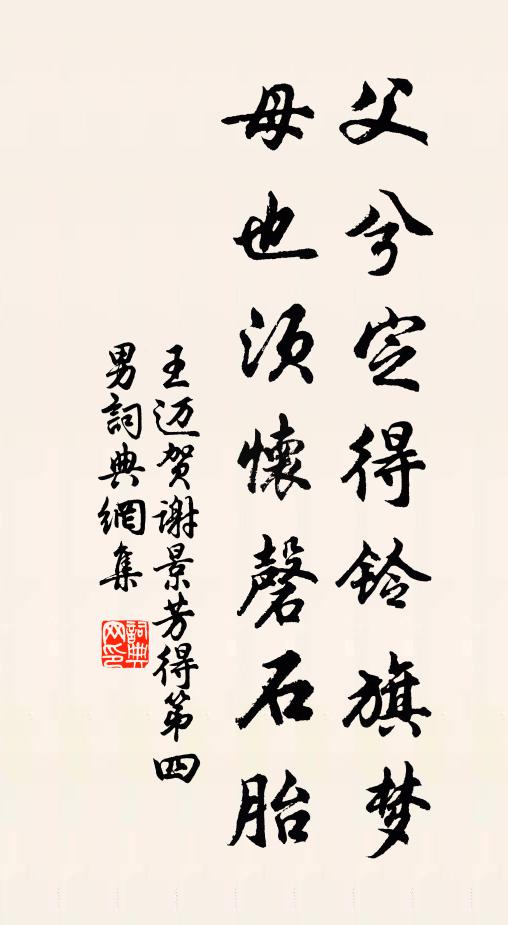 父兮定得鈴旗梦
母也須懷磬石胎
王迈贺谢景芳得第四
男詞典網集
詞典网印